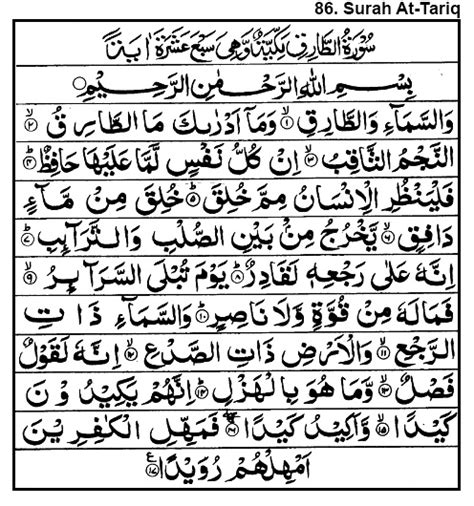 86. Surah At-Tariq
سُورَةُ الطَّارِقِ مَكِّيَّةٌ وَّهِيَ سَبْعَ عَشْرَةَ اٰيَةً
بِسْمِ اللهِ الرَّحْمٰنِ الرَّحِيْمِ
وَالسَّمَآءِ وَالطَّارِقِ ۙ﴿۱﴾ وَمَآ اَدْرٰىكَ مَا الطَّارِقُ ۙ﴿۲﴾
النَّجْمُ الثَّاقِبُ ۙ﴿۳﴾ اِنْ كُلُّ نَفْسٍ لَّمَّا عَلَيْهَا حَافِظٌ ؕ﴿۴﴾
فَلْيَنْظُرِ الْاِنْسَانُ مِمَّ خُلِقَ ؕ﴿۵﴾ خُلِقَ مِنْ مَّآءٍ
دَافِقٍ ۙ﴿۶﴾ يَّخْرُجُ مِنْۢ بَيْنِ الصُّلْبِ وَالتَّرَآئِبِ ؕ﴿۷﴾
اِنَّهٗ عَلٰى رَجْعِهٖ لَقَادِرٌ ؕ﴿۸﴾ يَوْمَ تُبْلَى السَّرَآئِرُ ۙ﴿۹﴾
فَمَالَهٗ مِنْ قُوَّةٍ وَّلَا نَاصِرٍ ؕ﴿۱۰﴾ وَالسَّمَآءِ ذَاتِ
الرَّجْعِ ۙ﴿۱۱﴾ وَالْاَرْضِ ذَاتِ الصَّدْعِ ۙ﴿۱۲﴾ اِنَّهٗ لَقَوْلٌ
فَصْلٌ ۙ﴿۱۳﴾ وَّمَا هُوَ بِالْهَزْلِ ؕ﴿۱۴﴾ اِنَّهُمْ يَكِيْدُوْنَ
كَيْدًا ۙ﴿۱۵﴾ وَّاَكِيْدُ كَيْدًا ۚ﴿۱۶﴾ فَمَهِّلِ الْكٰفِرِيْنَ
اَمْهِلْهُمْ رُوَيْدًا ﴿۱۷﴾